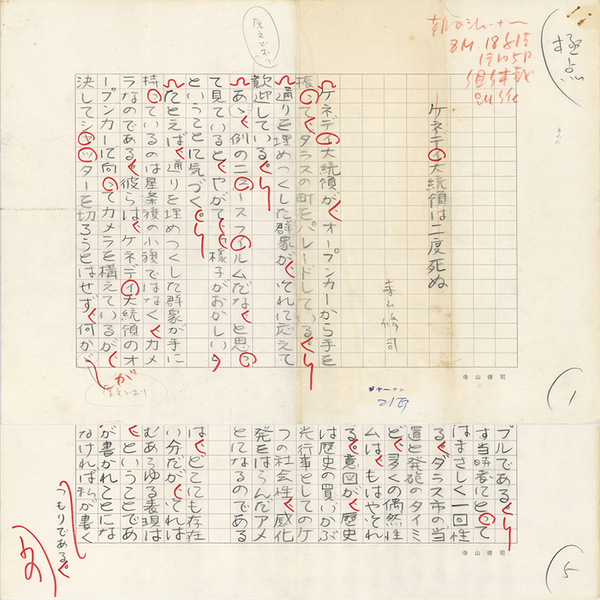 極点
8M 18字詰
ケネディ大統領は二度死ぬ
寺山修司
ケネディ大統領が、オープンカーから手を
振って、ダラスの町をパレードしている。
通りを埋めつくした群衆が、それに応えて
歓迎している。
あゝ、例のニュースフィルムだな、と思っ
て見ていると、やがて、様子がおかしい、
ということに気づく。
たとえば、通りを埋めつくした群衆が手に
持っているのは星条旗の小旗ではなく、カメ
ラなのである。彼らは、ケネディ大統領のオ
ープンカーに向ってカメラを構えているが、
決してシャッターを切ろうとはせず、何かが
が
寺山修司
1
ブルである。
す当時者にとって
はまさしく一回性
る、ダラス市の当
置と発砲のタイミ
ど、多くの偶然性
ムは、もはやそれ
る。意図が、歴史
は歴史の買いかぶ
先行事としてのケ
つの社会性、感化
発をはらんだアメ
とになるのである
は、どこにも存在
い分だが、それは
むあらゆる表現は
、ということであ
が書かれことにな
なければ私が書く
つもりである。
寺山修司
5